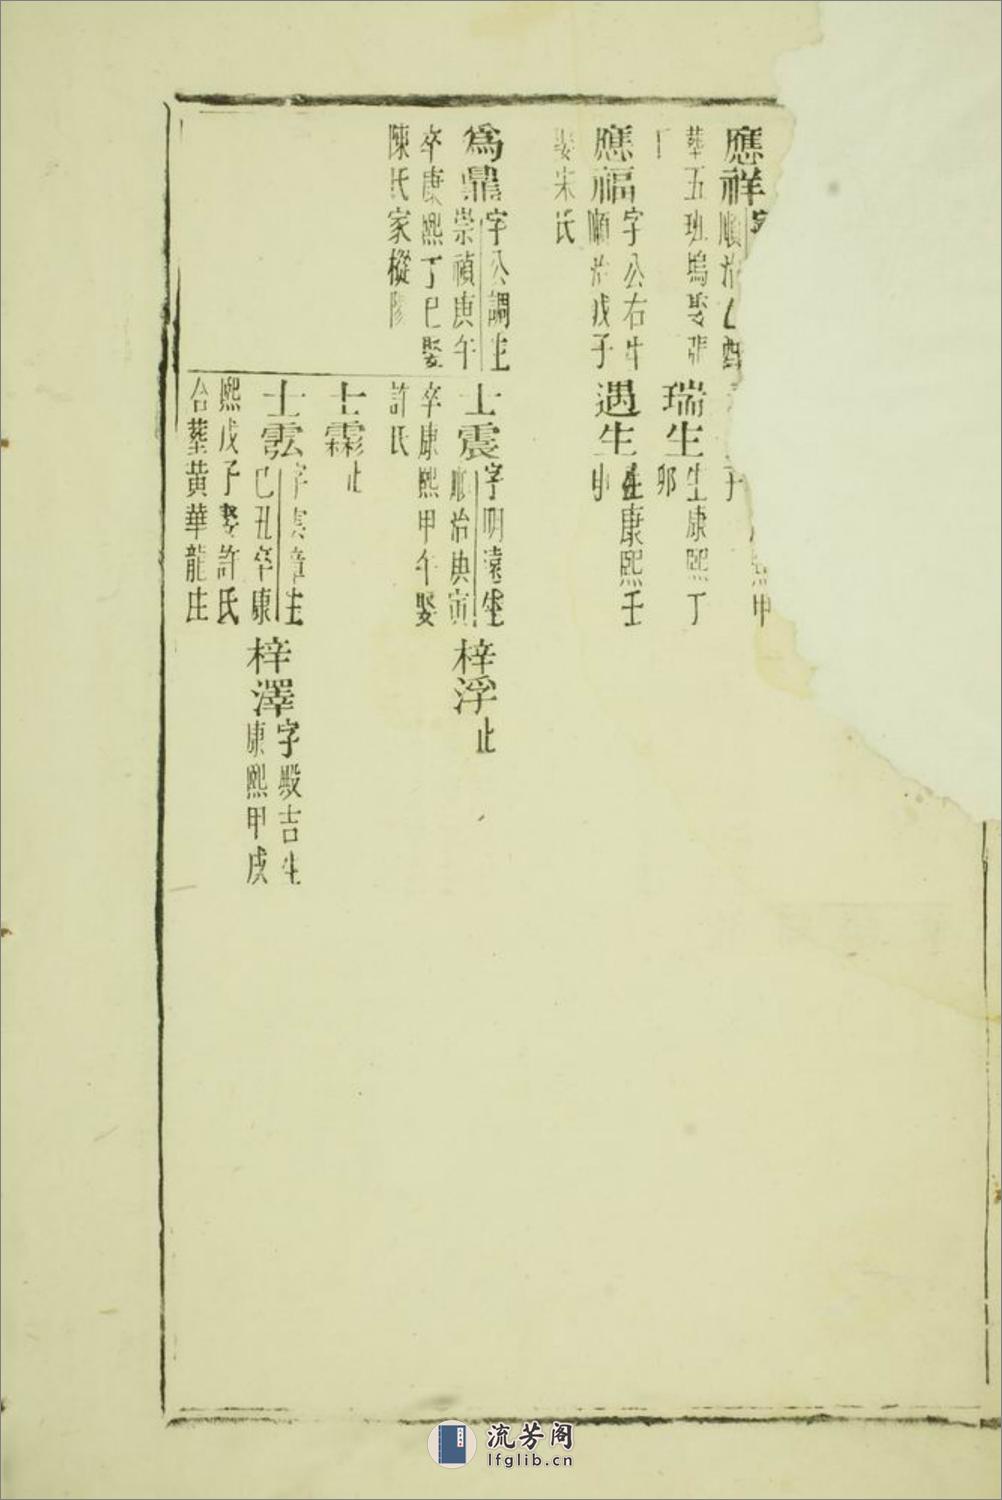 應祥字
順治乙酉
葬五班塢娶張
應福字公右生
順治戊子
娶宋氏
爲鼎字公調生
崇禎庚午
卒康熙丁巳娶
陳氏家樅陽
子
熙甲
瑞生生康熙丁
卯
遇生生康熙壬
申
士震字明遠生
順治庚寅
卒康熙甲午娶
許氏
士霖止
士雲字章生
己丑卒康
熙戊子娶許氏
合葬黄華龍庄
梓浮止
梓澤字殿吉生
康熙甲戌
流芳阁
lfglib.cn